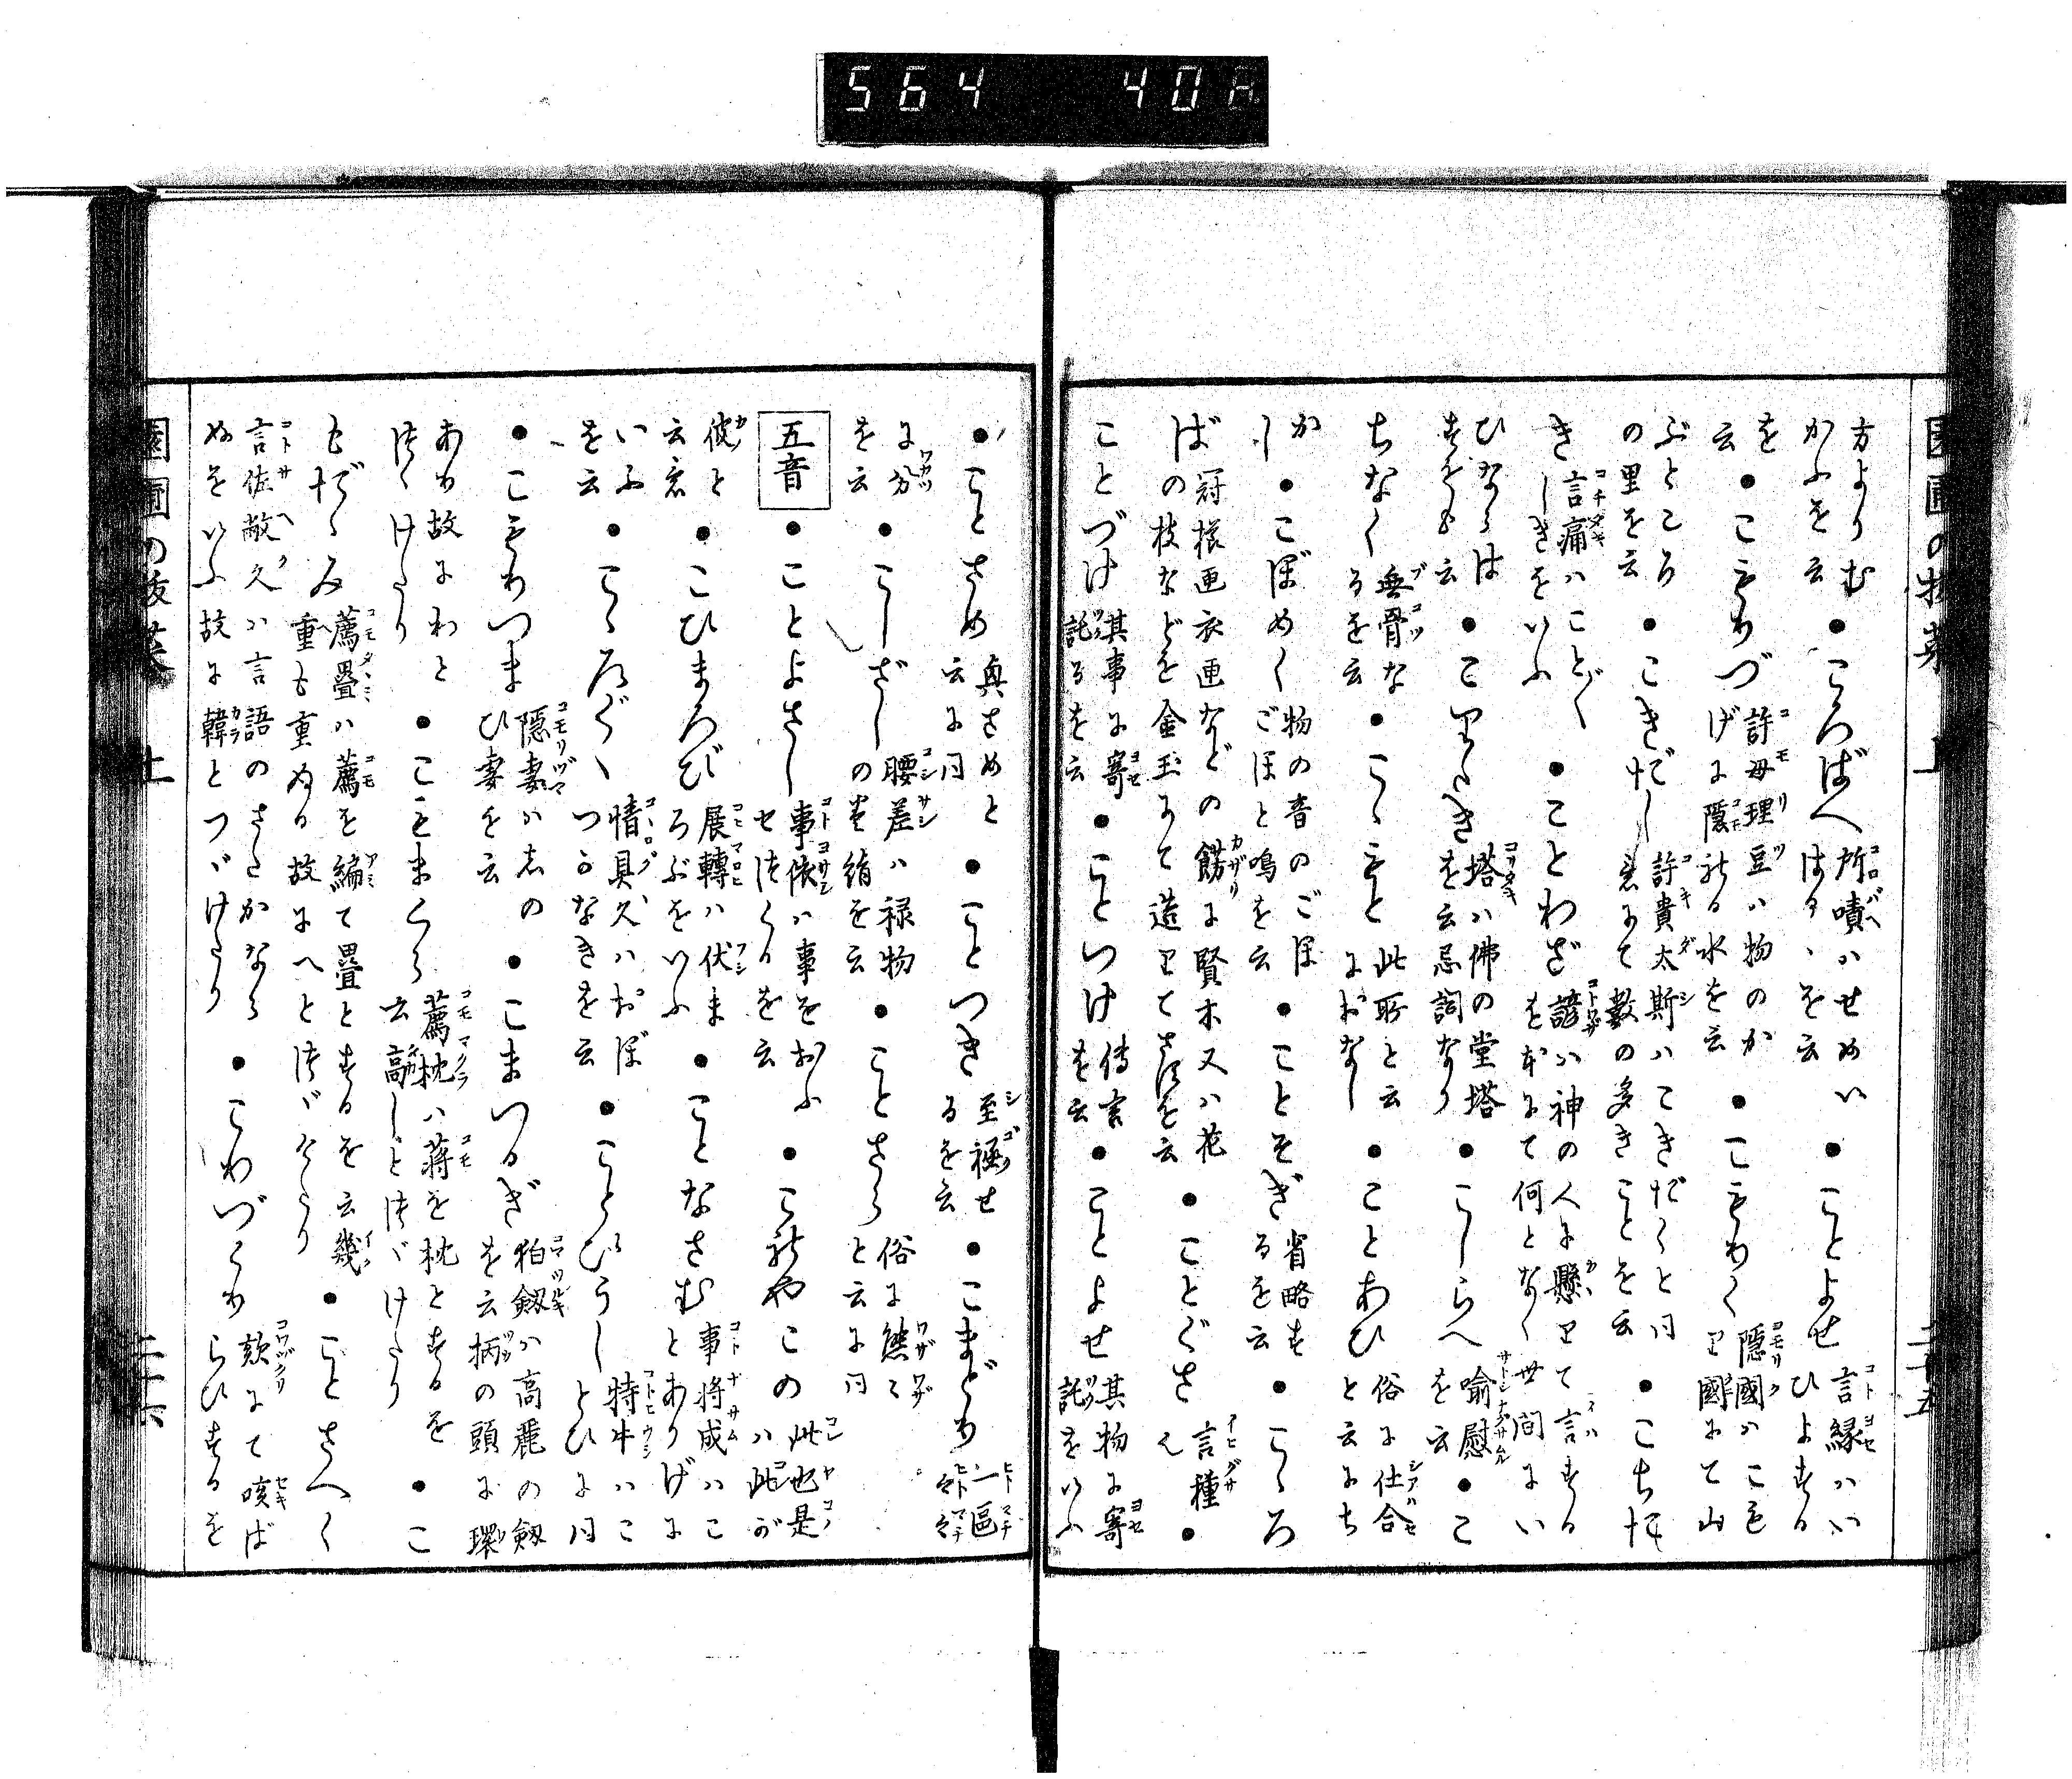 564 40A
方よりむかふを云 ●ころばへ 所嘖ハせめいはるゝを云 ●ことよせ 言縁ハいひよする
を云 ●こもりづ 許母理豆ハ物のかげに隠れる水を云 ●こもりく 隠國ハこもり國にて山
ぶところの里を云 ●こきだし 許貴太斯ハこきだくと同意にて數の多きことを云 ●こちた
き 言痛ハことごとしきをいふ ●ことわざ 諺ハ神の人に懸りて言する をにて何となく世間にい
ひならはすをも云 ●こりたき 塔ハ佛の堂塔を云忌詞なり ●こしらへ 喩慰を云 ●こ
ちなく 無骨なるを云 ●こゝもと 此所と云におなし ●ことあひ 俗に仕合と云にち
かし ●こぼめく 物の音のごぼごぼと鳴を云 ●ことそぎ 省略するを云 ●こゝろ
ば 冠様画衣画などの餝に賢木又ハ花の枝などを金玉にて造りてさすを云 ●ことぐさ 言種 ●
ことづけ 其事に寄託るを云 ●ことつけ 傳言を云 ●ことよせ 其物に寄託をいふ
●ことさめ 真さめと云に同 ●ことつき 至福せるを云 ●こまどり 一區
に分を云 ●こしざし 腰差ハ禄物の巻絹を云 ●ことさら 俗に態々と云に同
五音 ●ことよさし 事依ハ事をおふせつくるを云 ●これやこの 此也是ハ此が
彼と云意 ●こひまろび 展轉ハ伏まろぶをいふ ●ことなさむ 事将成ハことありげに
いふを云 ●こゝろぐゝ 情具久ハおぼつかなきを云 ●ことひうし 特牛ハことひに同
●こもりつま 隠妻ハしのひ妻を云 ●こまつるぎ 狛釼ハ高麗の釼を云柄の頭に環
あり故にわとつゞけたり ●こもまくら 薦枕ハ蒋を枕とするを云高しとつゞけたり ●こ
もだゝみ 薦疊ハ薦を編て畳とするを云幾重も重ぬる故にへとつゞけたり ●ことさへく
言佐敝久ハ言語のさたかならぬをいふ故に韓とつゞけたり ●こわづくり 欬にて咳ばらひするを